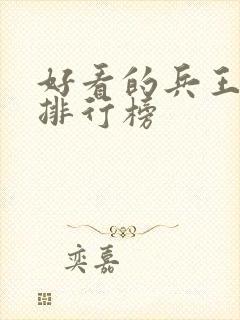 好看的兵王
排行榜
奕嘉